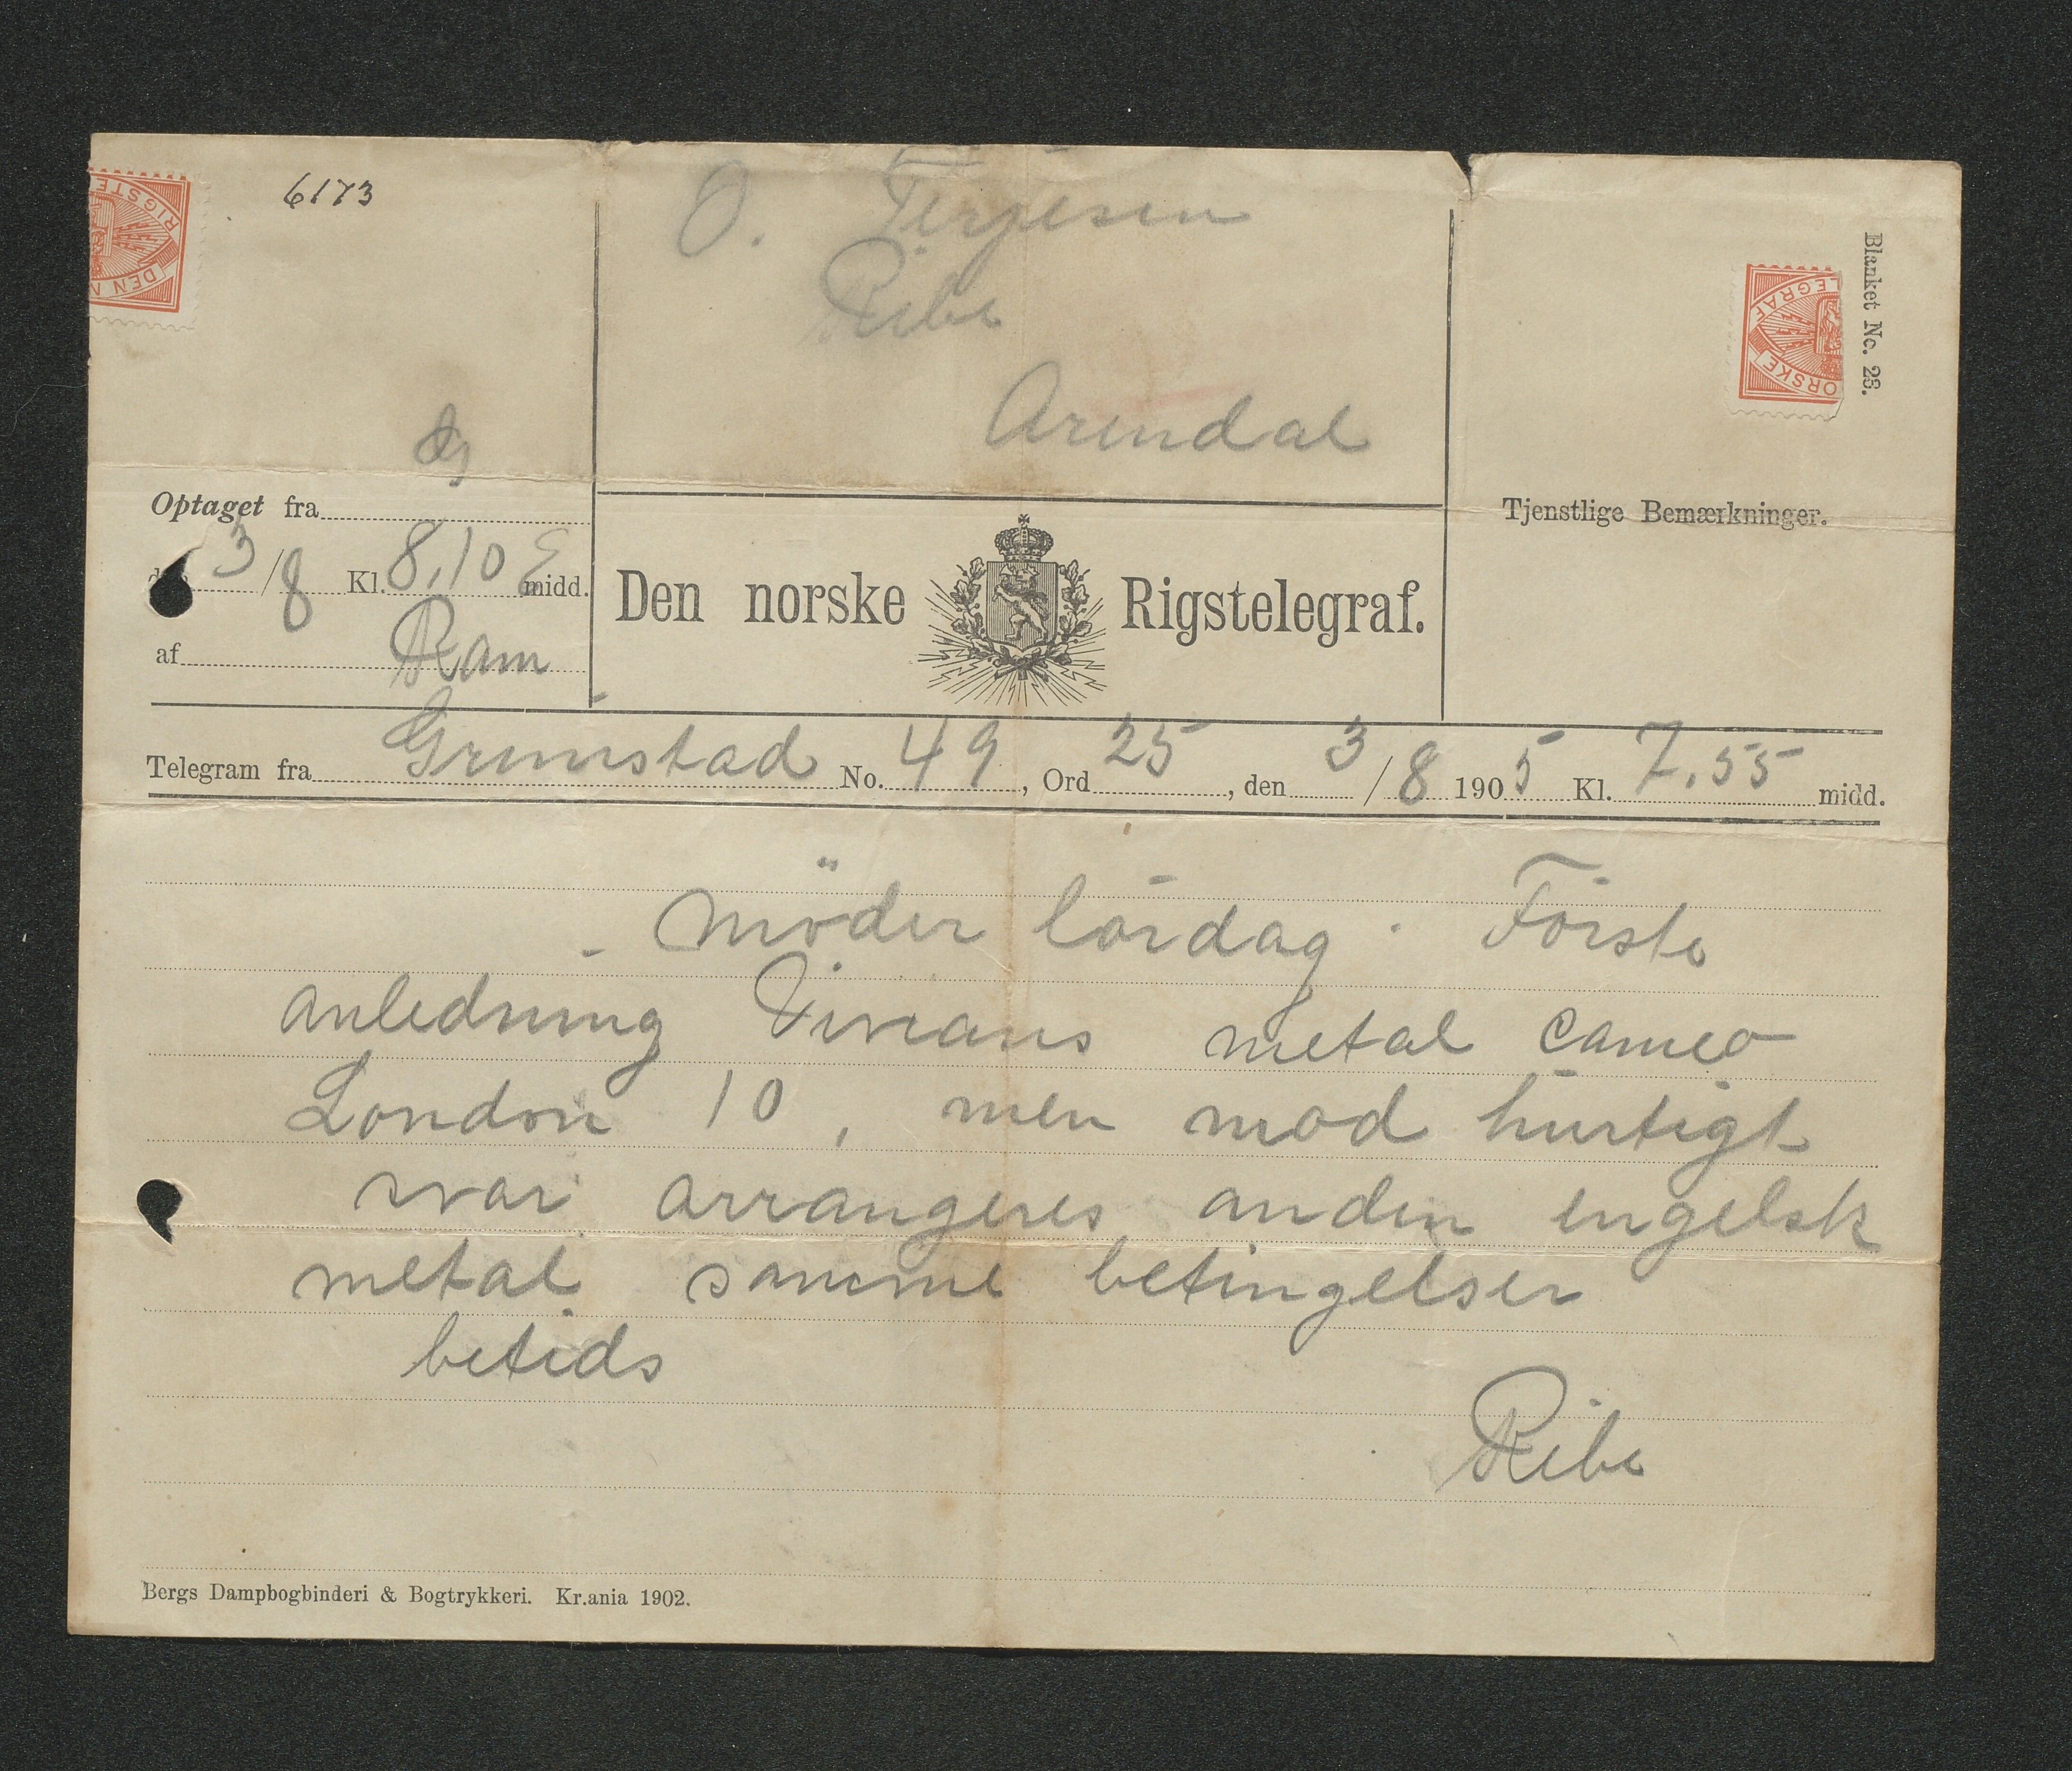 6173
O. Terjesen
Ribe
Arendal
Blanket No. 23.
Optaget fra
3/8 Kl. 8,10 E midd.
af Ram
Den norske Rigstelegraf.
Tjenstlige Bemærkninger.
Telegram fra Grimstad No. 49, Ord 25, den 3/8 1905 Kl. 7.55 midd.
Möder lördag. Förste
anledning Vivians metal cameo
London 10, men mod hurtigt
svar arrangeres anden engelsk
metal samme betingelser
betids
Ribe
Bergs Dampbogbinderi & Bogtrykkeri. Kr.ania 1902.